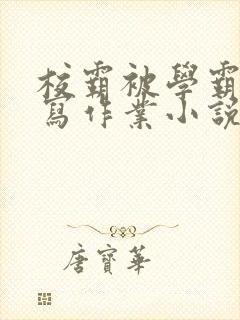 校霸被學霸
寫作業小說
唐寶華